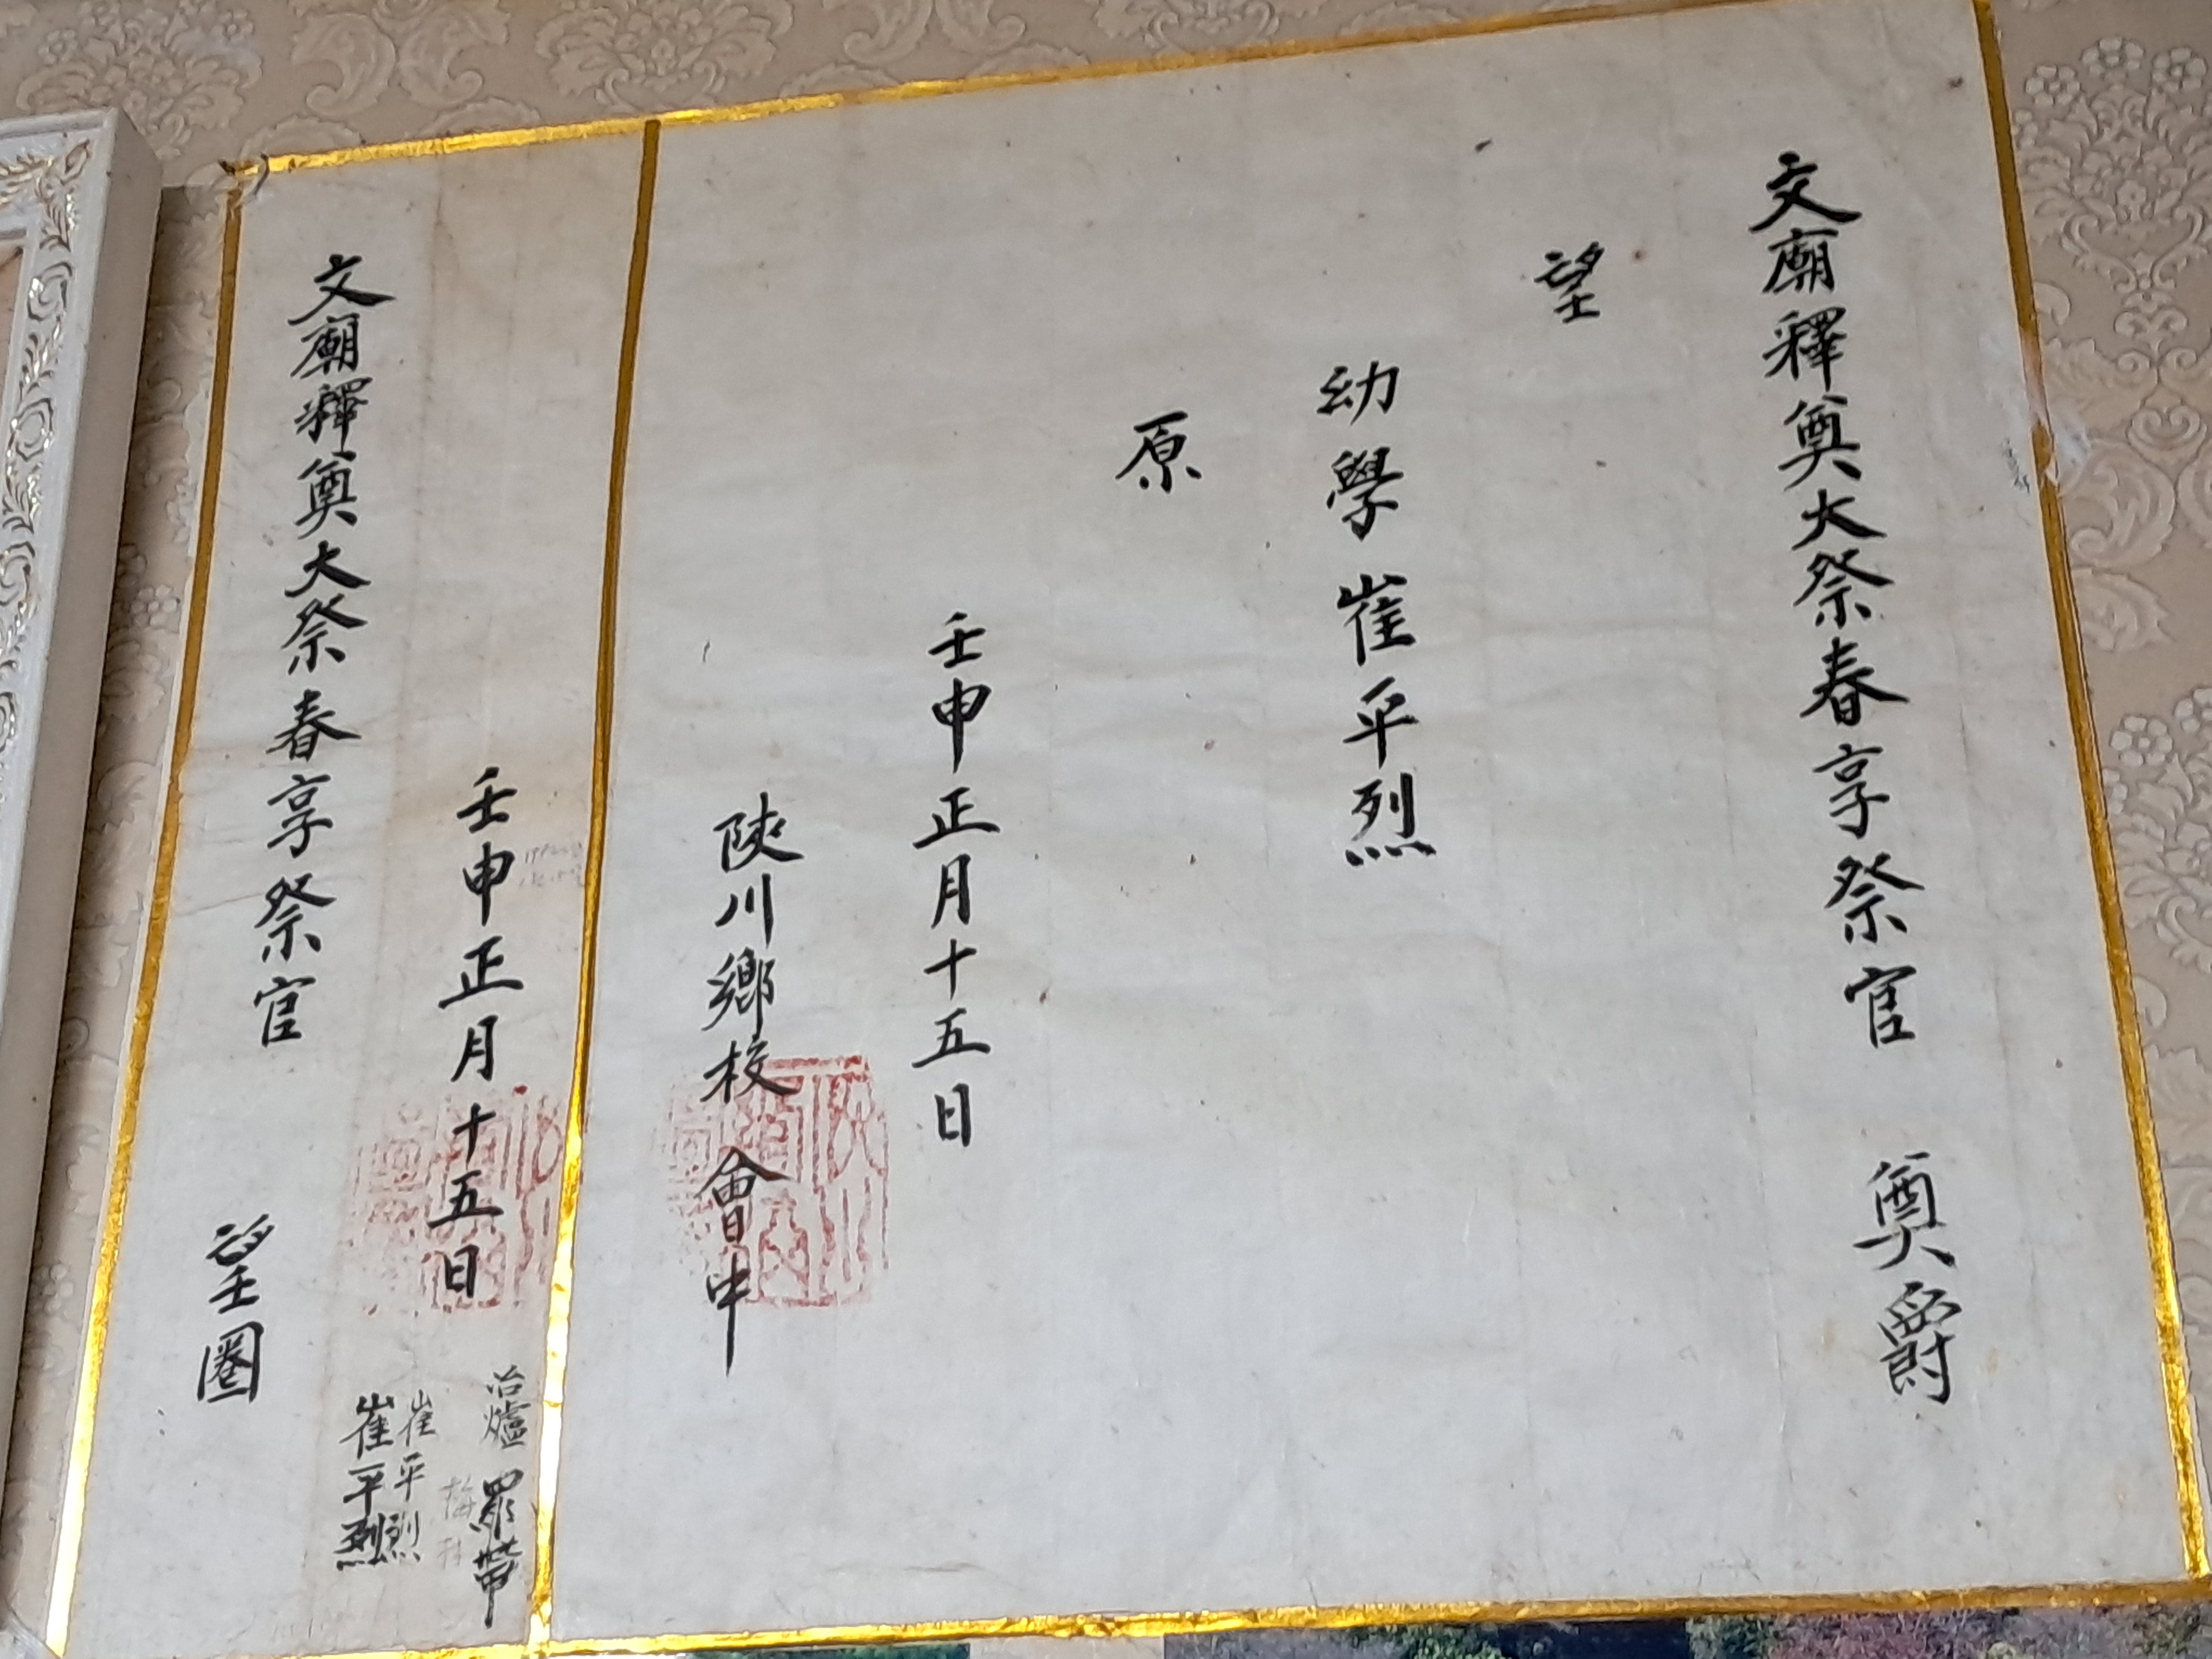 文廟釋奠大祭春享祭官 奠爵
望
幼學 崔平烈
原
壬申正月十五日
陜川鄕校 會中
壬申正月十五日
文廟釋奠大祭春享祭官 望圈
冶爐
崔平烈
崔平烈